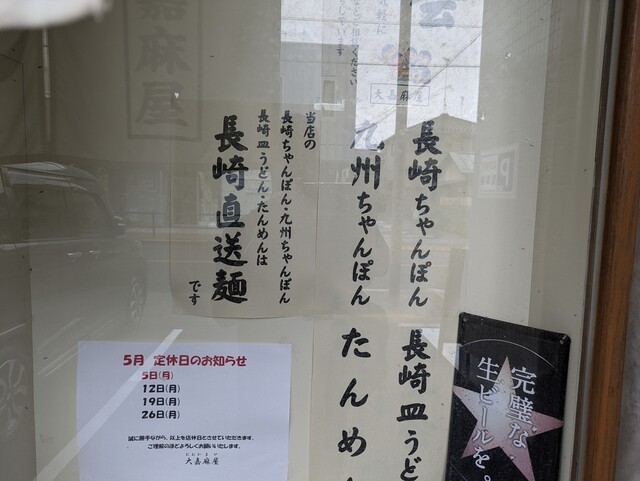 長崎ちゃんぽん 長崎皿うど
九州ちゃんぽん たんめん
当店の
長崎ちゃんぽん・九州ちゃんぽん
長崎皿うどん・たんめんは
長崎直送麺
です
嘉麻屋
大嘉麻屋
5月 定休日のお知らせ
5日(月)
12日(月)
19日(月)
26日(月)
誠に勝手ながら、以上を店休日とさせていただきます。
ご理解のほどよろしくお願いいたします。
大嘉麻屋
完璧な
生ビールを。